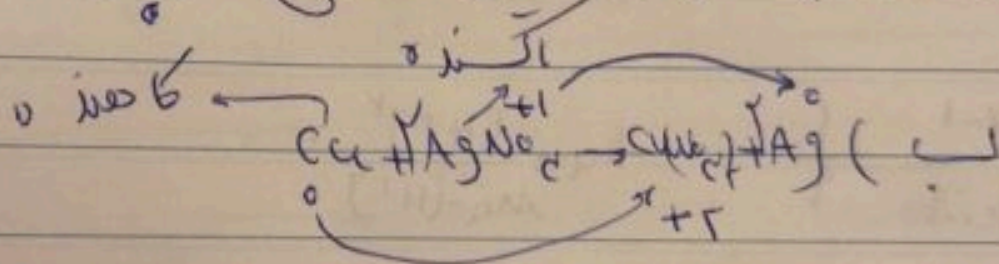 اکسنده
کاهنده
ب) Cu + ۲AgNO۳ → Cu(NO۳)۲ + ۲Ag
+1
0
0
+۲